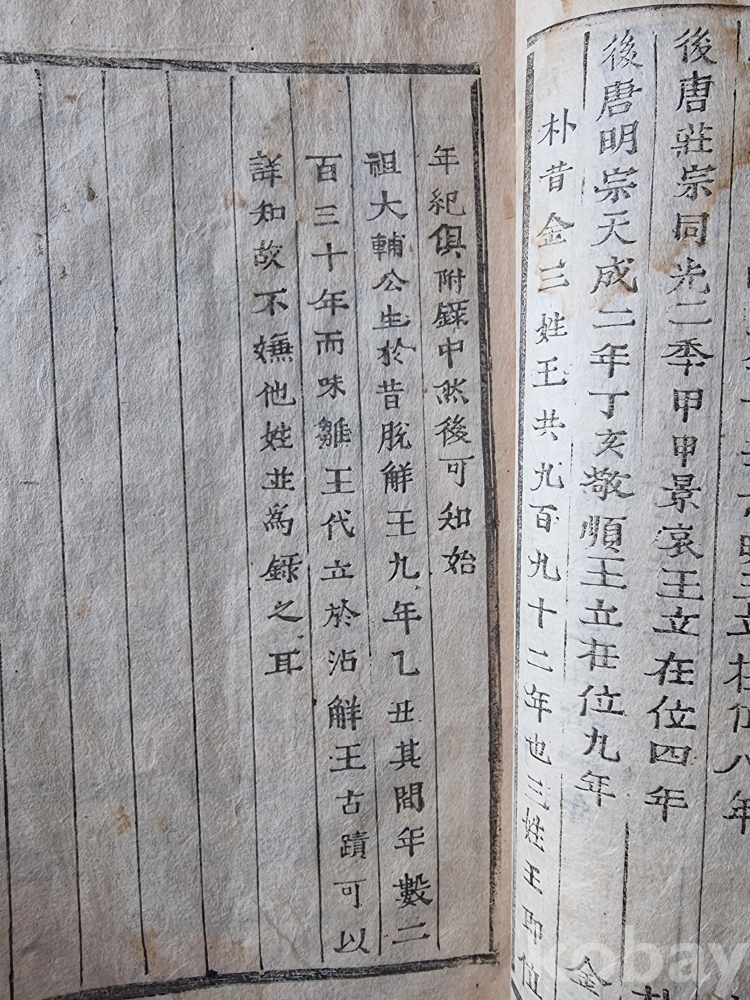 王立在位八年
後唐莊宗同光二季甲申景哀王立在位四年
後唐明宗天成二年丁亥敬順王立在位九年
金
朴昔金三姓王共九百九十二年也三姓王即位
年紀俱附錄中然後可知始
祖大輔公生於昔脫解王九年乙丑其間年數二
百三十年而味雛王代立於沾解王古蹟可以
詳知故不嫌他姓並爲錄之耳
kobay